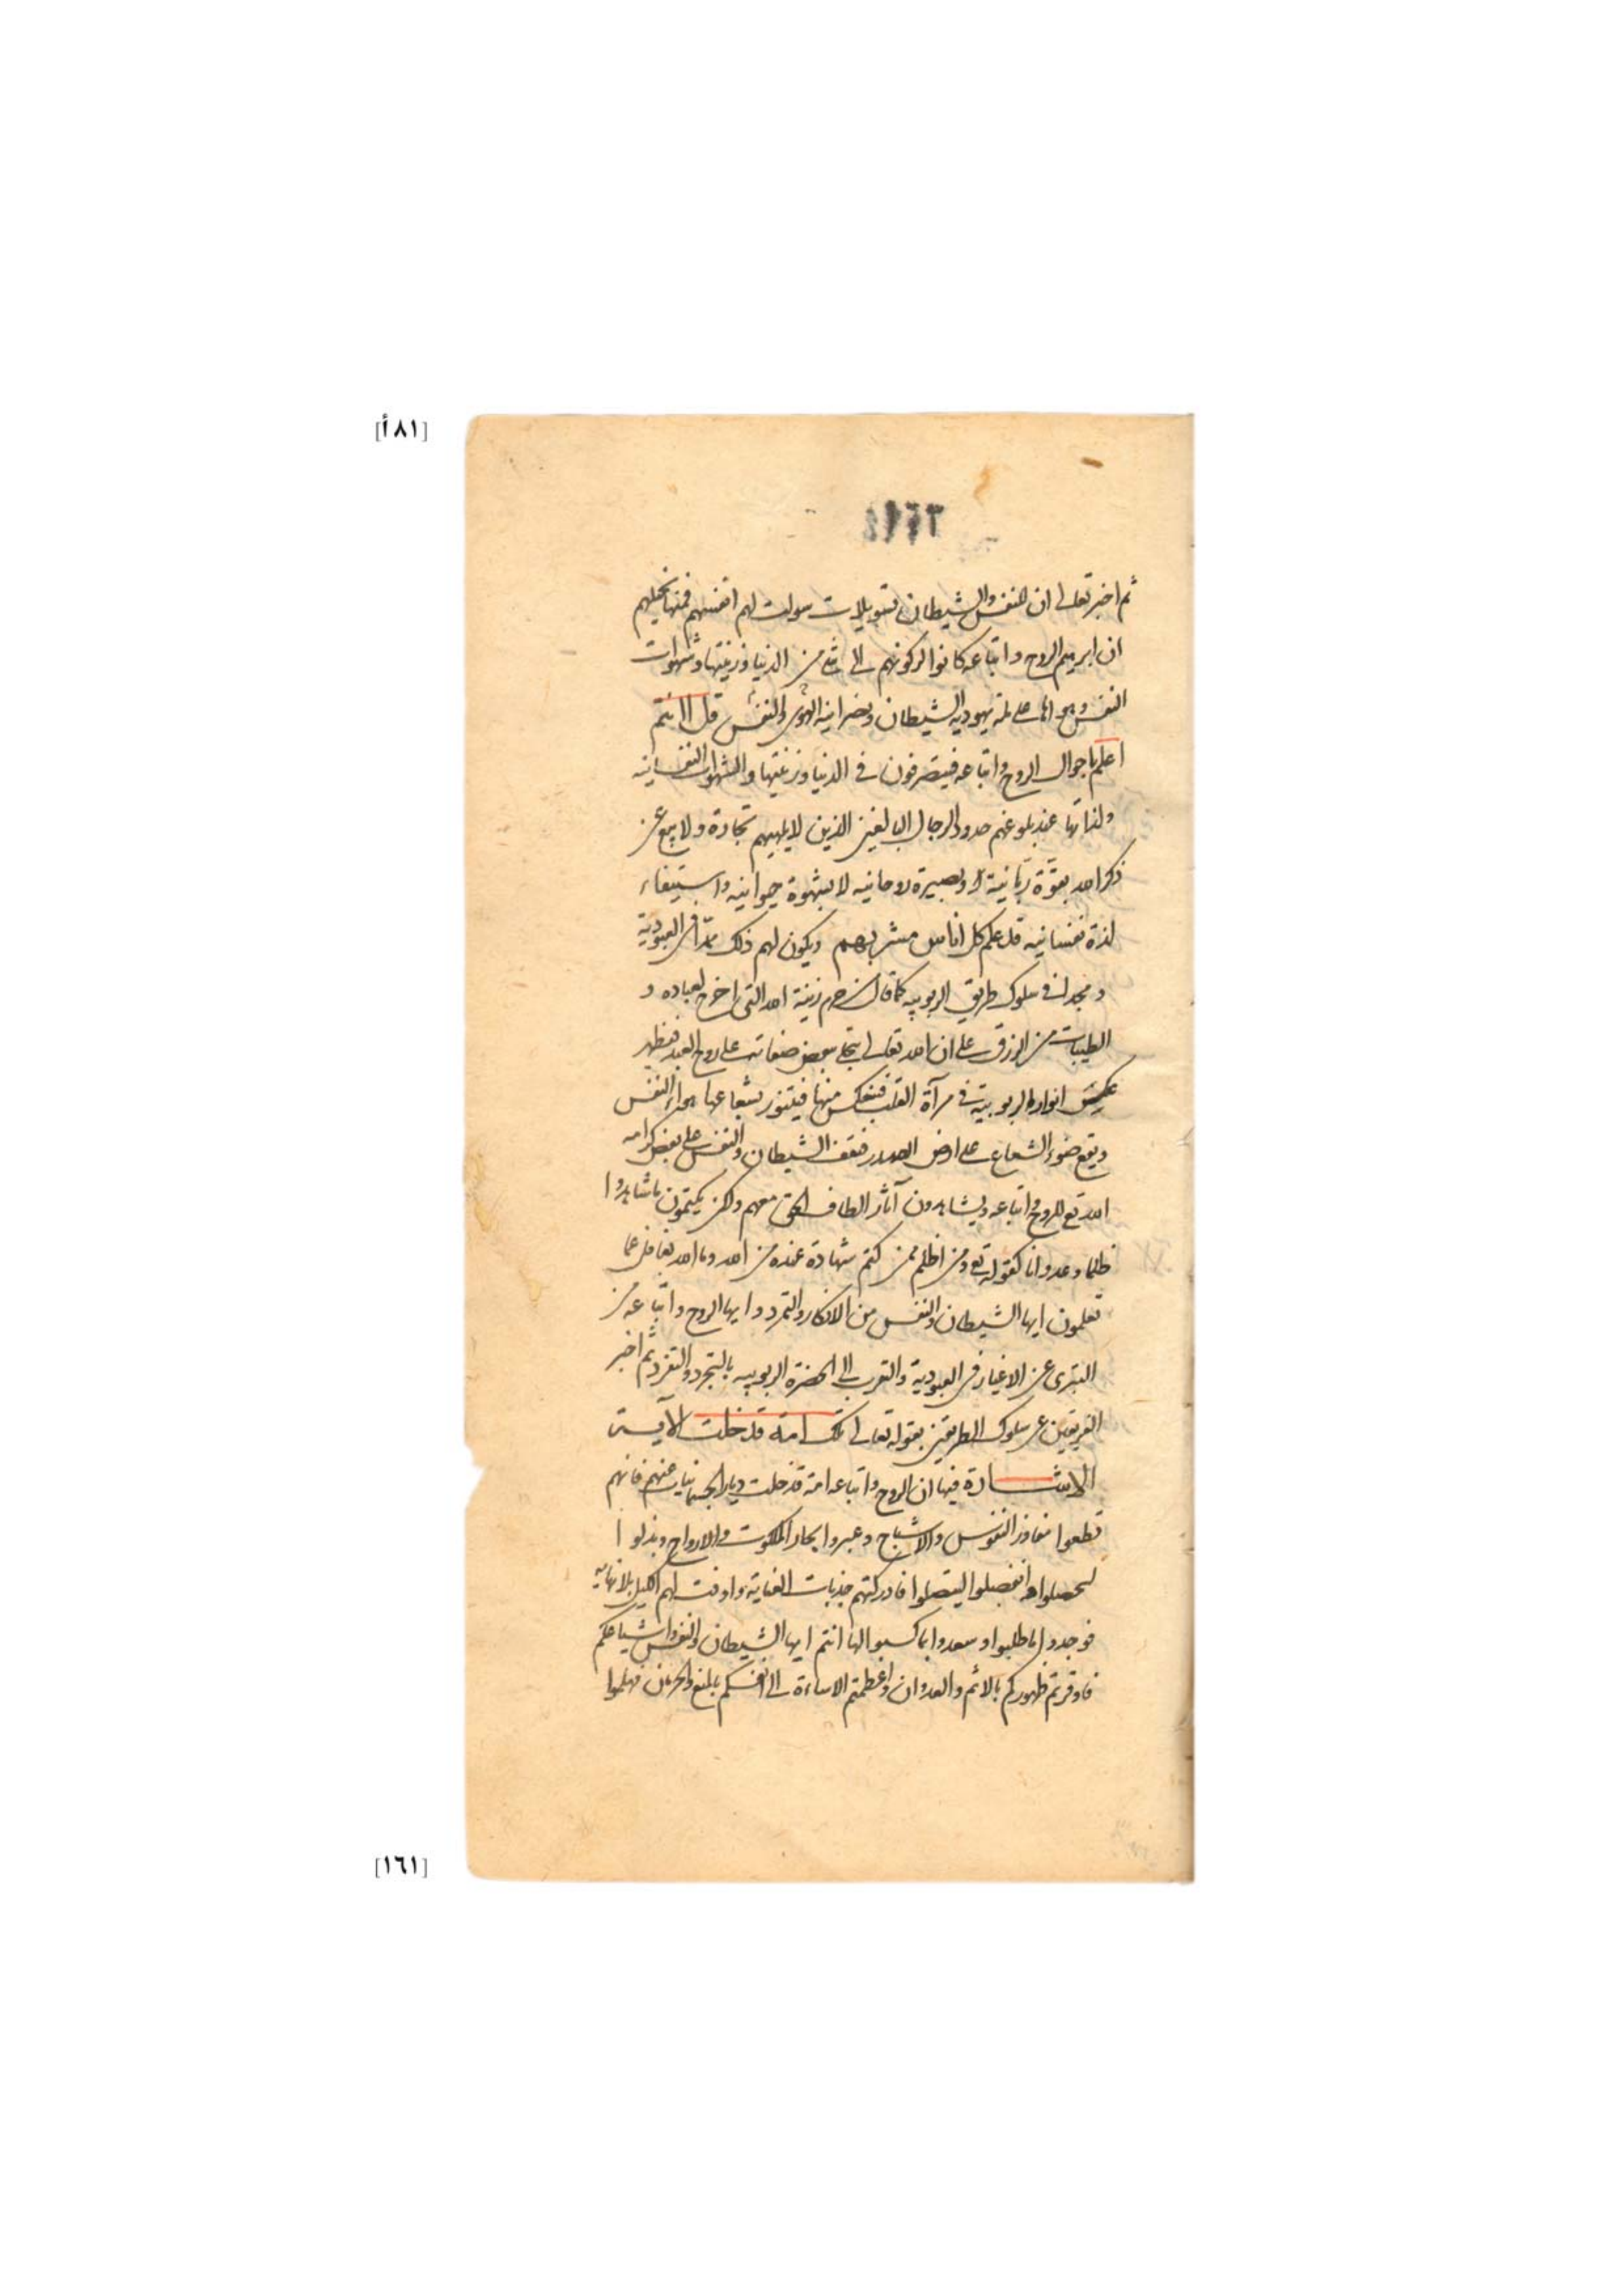 [٨١أ]
ثم اخبر تعالى ان للنفس والشيطان تسويلات سولت لهم انفسهم فمنها تخيلهم
ان ابرهيم الروح واتباعه كانوا لركونهم الى شئ من الدنيا وزينتها وشهوات
النفس وهواها على ملة يهودية الشيطان ونصرانية الهوى والنفس قل اانتم
اعلم باحوال الروح واتباعه فيتصرفون فى الدنيا وزينتها والشهوات النفسانية
ولذاتها عند بلوغهم حدود الرجال البالغين الذين لا يلهيهم تجارة ولا بيع عن
ذكر الله بقوة ربانية وبصيرة روحانية لا بشهوة حيوانية واستيفاء
لذة نفسانيه قد علم كل اناس مشربهم ويكون لهم ذلك ممدا فى العبودية
و مجدا فى سلوك طريق الربوبيه كما قال من حرم زينة الله التى اخرج لعباده و
الطيبات من الرزق على ان الله تعالى يتجلى ببعض صفاته على روح العبد فيظهر
عكس انواره الربوبية فى مرآة القلب فينعكس منها فيتنور بشعاعها هواء النفس
ويقع ضوء الشعاع على ارض الصدر فيقف الشيطان والنفس على بعض كرامه
الله تع للروح واتباعه ويشاهدون آثار الطاف الحق معهم ولكن يكتمون ما شاهدوا
ظلما وعدوانا كقوله تع ومن اظلم ممن كتم شهادة عنده من الله وما الله بغافل عما
تعلمون ايها الشيطان والنفس من الانكار والتمرد وايها الروح واتباعه من
التبرى عن الاغيار فى العبودية والتقرب الى الحضرة الربوبيه بالتجرد والتفرد ثم اخبر
الفريقين عن سلوك الطريقين بقوله تعالى تلك امة قد خلت الآية
الاشارة فيها ان الروح واتباعه امة قد خلت ديار الجسمانيات عنهم فانهم
قطعوا مفاوز النفوس والاشباح وعبروا بحار الملكوت والارواح وبذلوا
ليحصلوا وانفصلوا ليتصلوا فادركتهم جذبات العناية واوفت لهم الكيل بلا نهاية
فوجدوا ما طلبوا وسعدوا بما كسبوا لها انتم ايها الشيطان والنفس واشياعكم
فاوقرتم ظهوركم بالاثم والعدوان واعظمتم الاساءة الى انفسكم بالمنع والحرمان فهلموا
[١٦١]